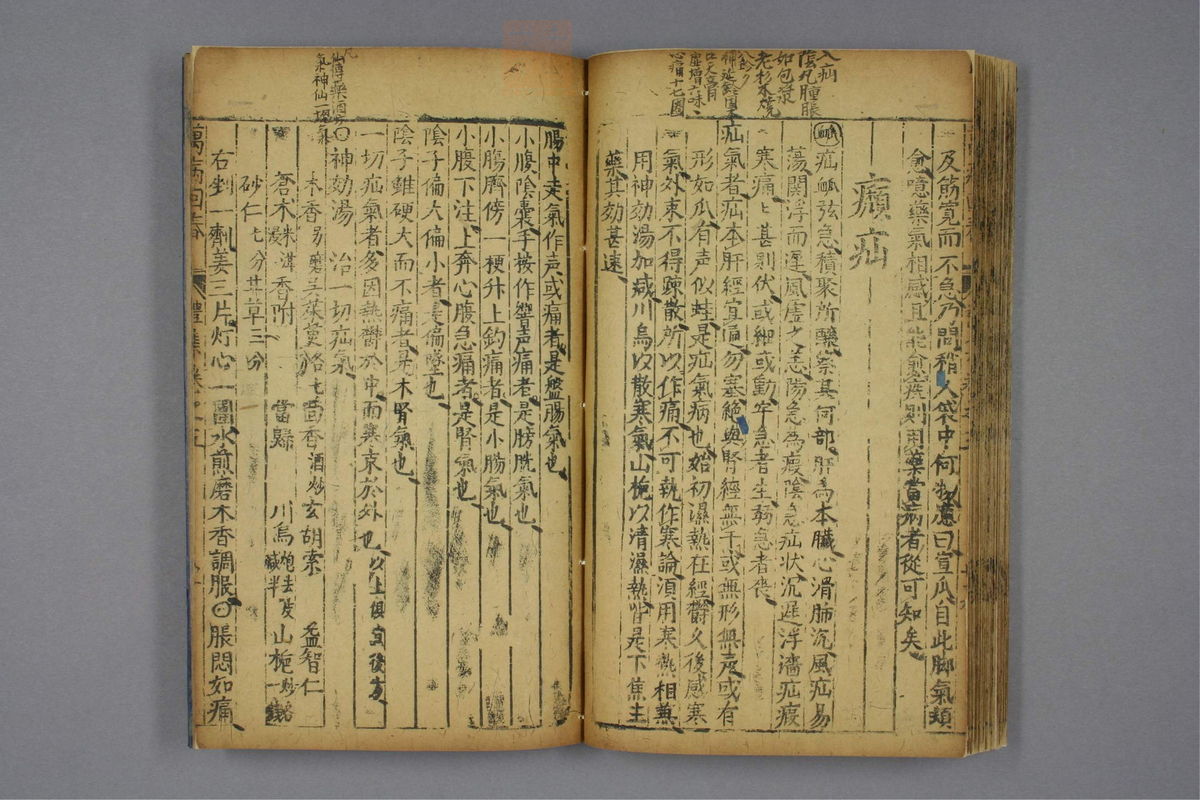 入疝
陰丸腫脹
如包漿
老杉木燒
及筋寛而不急乃問稍人袋中何物應曰宣瓜自此脚氣頓
愈噫藥氣相感且能愈疾則用藥當病者從可知矣
㿗疝
疝脉弦急積聚所釀察其何部肝為本臟心滑肺沉風疝易
蕩關浮而遲風虚之恙陽急為瘕陰急疝状沉遲浮濇疝瘕
寒痛〻甚則伏或細或動牢急者生弱急者喪
疝氣者疝本肝經宜通勿塞絶與腎經無干或無形無声或有
形如瓜有声似蛙是疝氣病也始初濕熱在經欝久後感寒
氣外束不得踈散所以作痛不可執作寒論須用寒熱相兼
用神効湯加减川烏以散寒氣山梔以清濕熱皆是下焦主
藥其効甚速
腸中走氣作声或痛者是盤腸氣也
小腹陰囊手按作響声痛者是膀胱氣也
小腸臍傍一梗升上釣痛者是小腸氣也
小腹下注上奔心腹急痛者是腎氣也
陰子偏大偏小者是偏墜也
陰子雖硬大而不痛者是木腎氣也
一切疝氣者多因熱欝於中而寒束於外也以上俱宜後方
神効湯 治一切疝氣
木香另磨吴茱萸 茴香酒炒玄胡索 益智仁
蒼木米泔浸香附 當歸 川烏炮去皮减半山梔炒
砂仁七分甘草三分
右剉一劑姜三片灯心一團水煎磨木香調服〇脹悶如痛
萬病回春